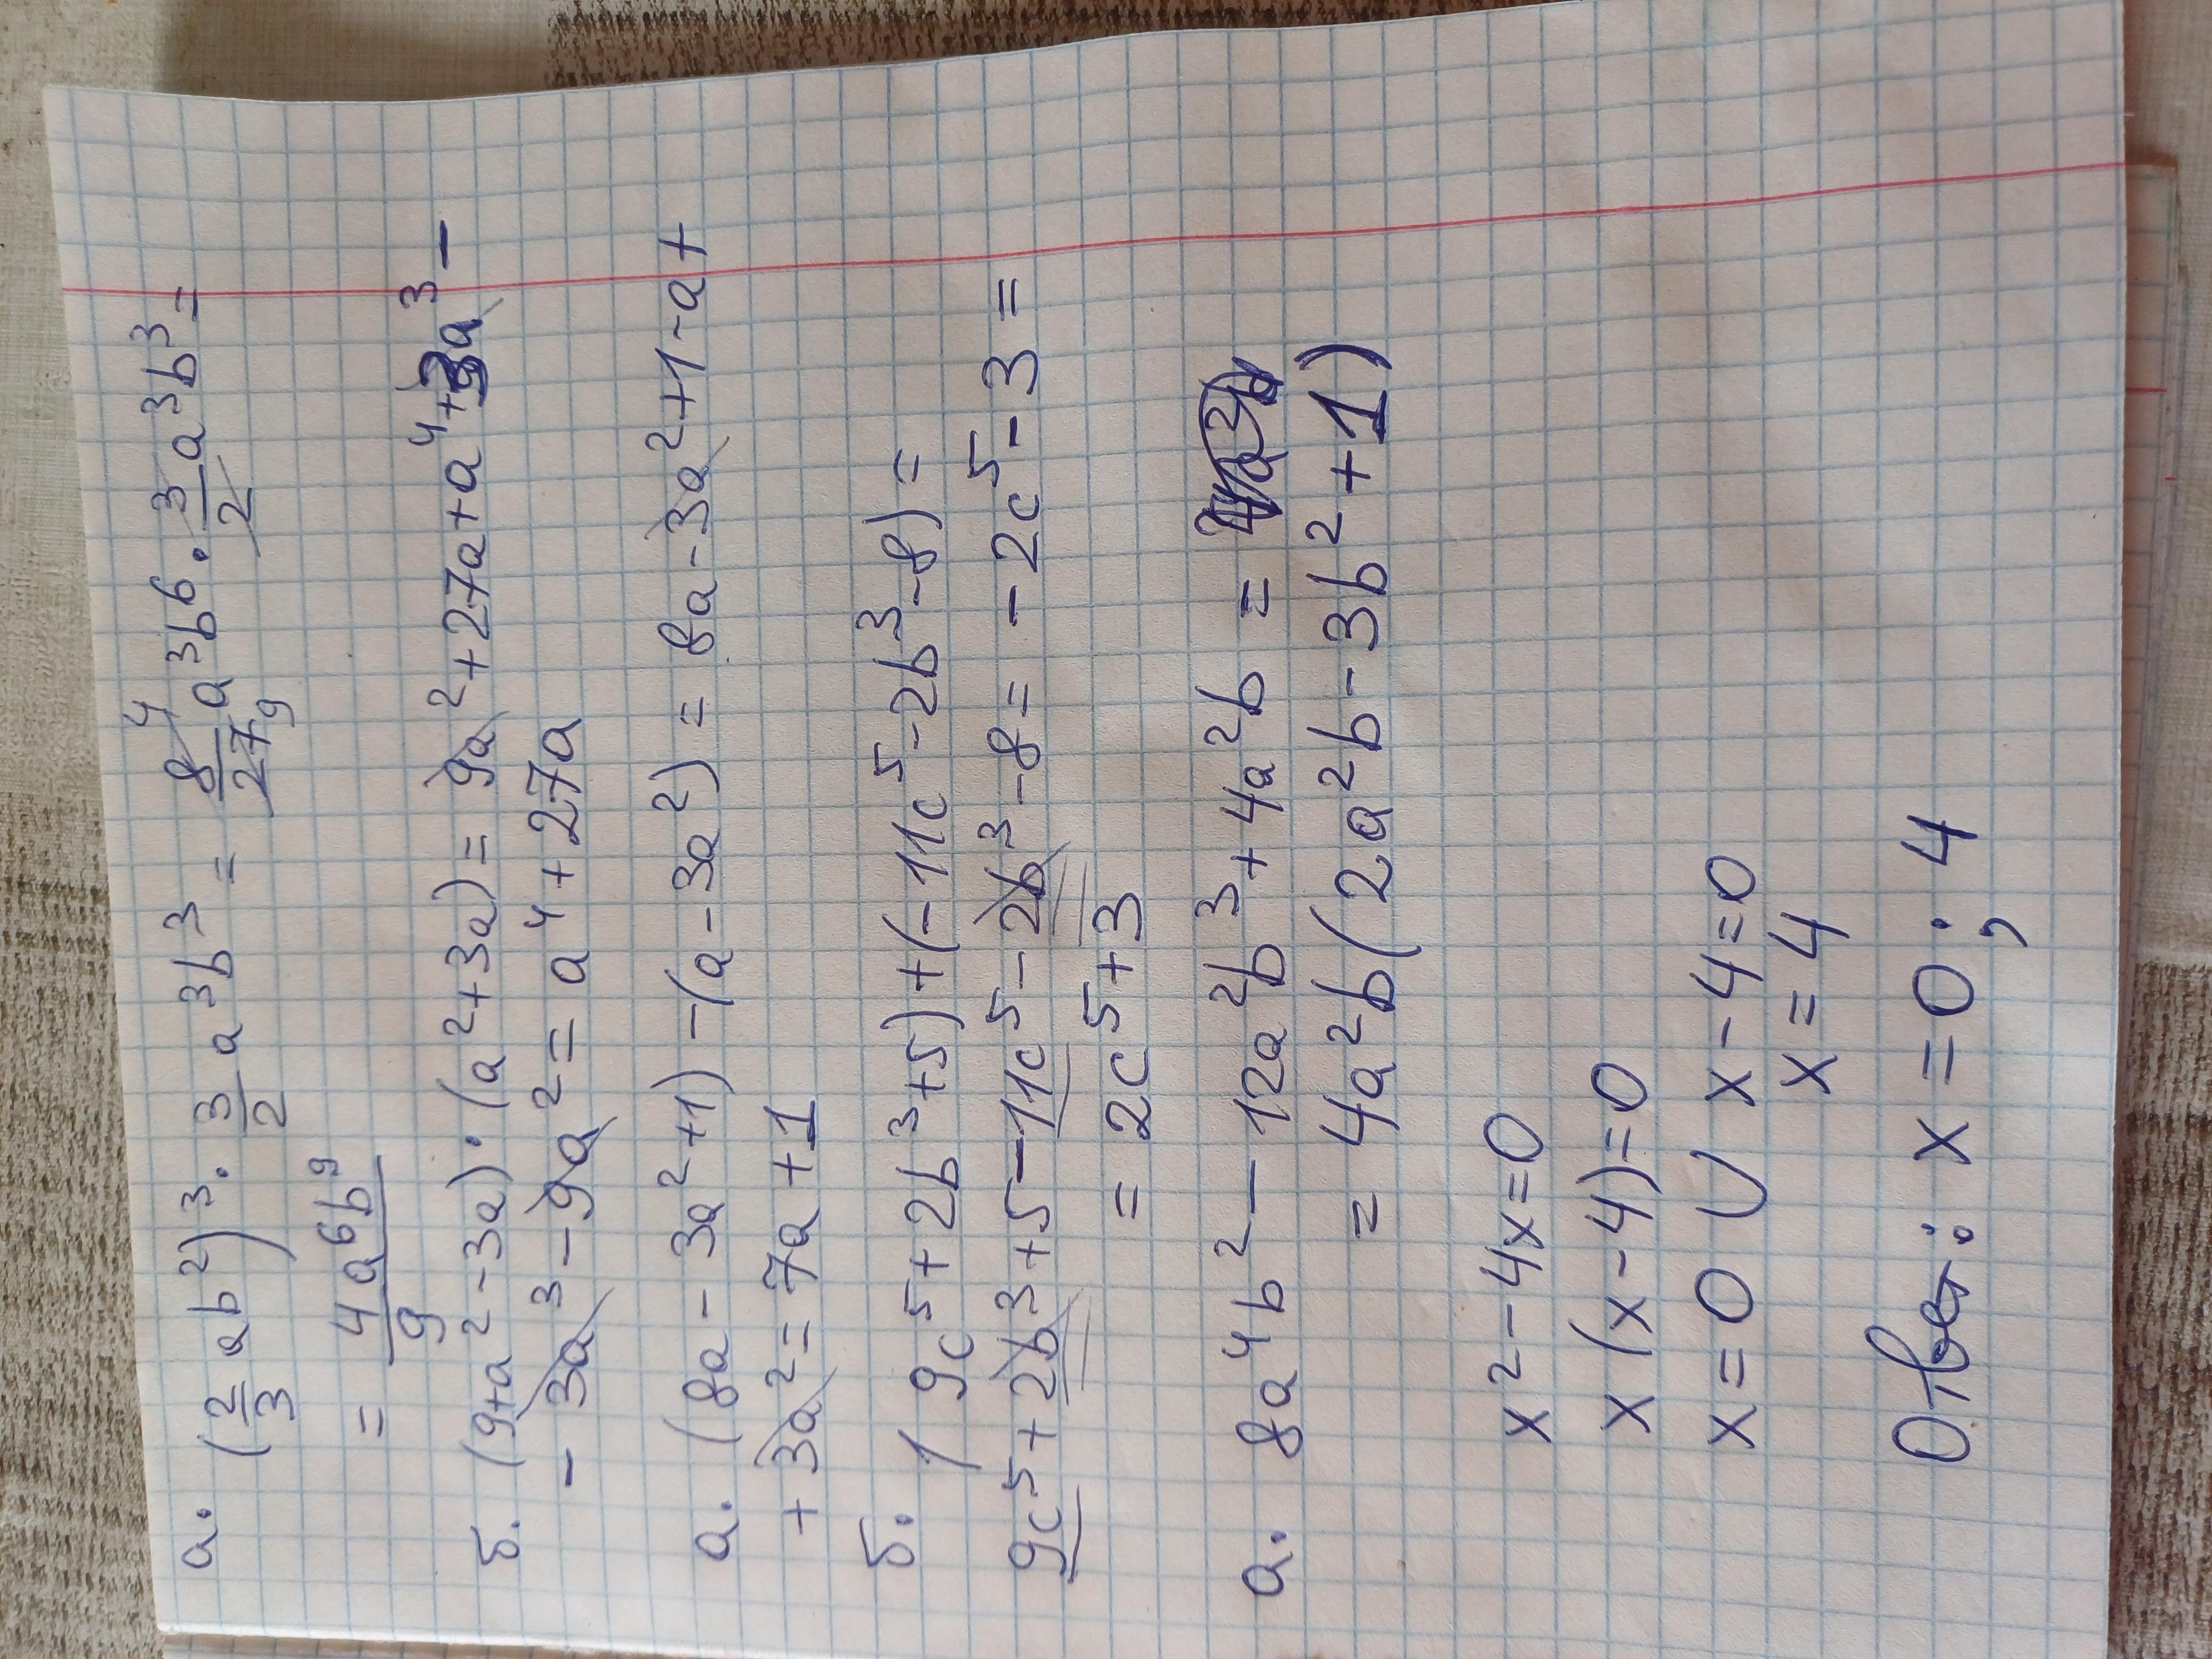 а. (2/3 ab²)³ · 3/2 a³b³ = 8 4/27 9 a³b⁶ · 3/2 a³b³ =
= 4a⁶b⁹/9
б. (9+a²-3a)·(a²+3a) = 9a²+27a+a⁴+3a³-
- 3a³-9a² = a⁴+27a
а. (8a-3a²+1)-(a-3a²) = 8a-3a²+1-a+
+3a² = 7a+1
б. (9c⁵+2b³+5)+(-11c⁵-2b³-8) =
9c⁵+2b³+5-11c⁵-2b³-8 = -2c⁵-3 =
= 2c⁵+3
а. 8a⁴b² - 12a²b³+4a²b =
= 4a²b(2a²b-3b²+1)
x²-4x=0
x(x-4)=0
x=0 ∪ x-4=0
x=4
Ответ: x=0; 4